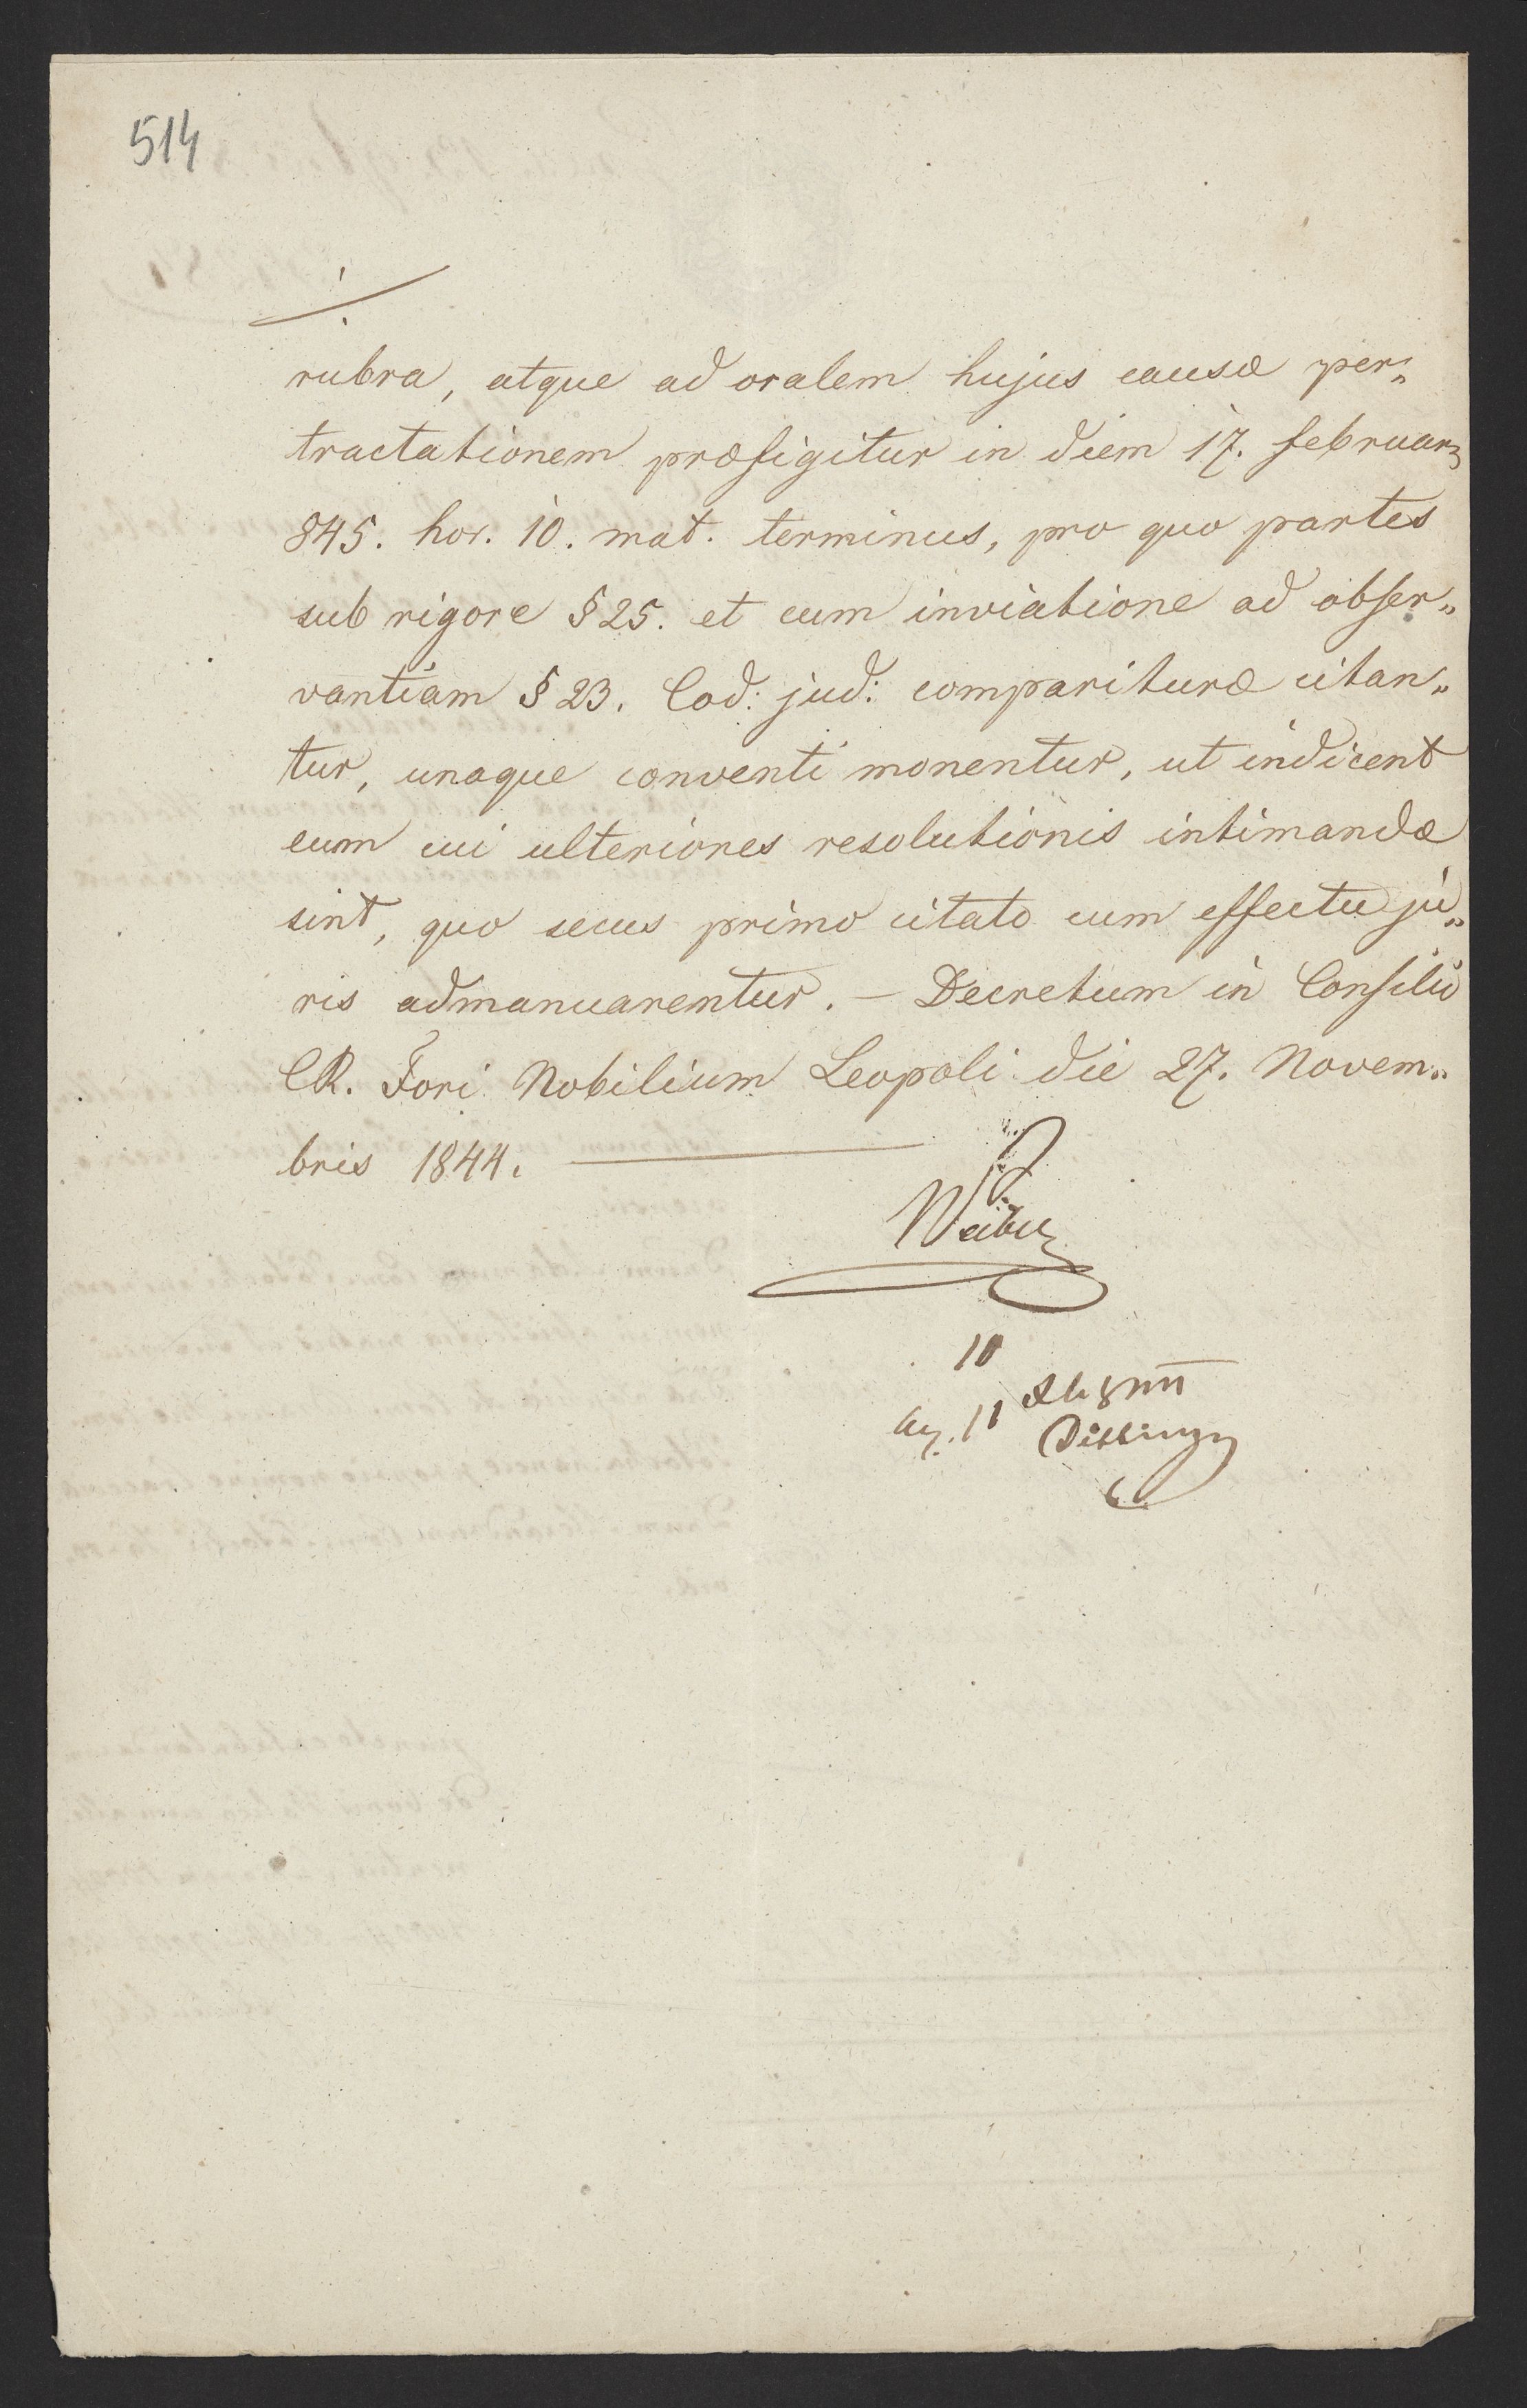 514
rubra, atque ad oralem hujus causæ per„
tractationem præfigitur in diem 17. februar
845. hor. 10. mat. terminus, pro quo partes
sub rigore § 25. et cum inviatione ad obser„
vantiam § 23. Cod: jud: comparituræ citan„
tur, unaque conventi monentur, ut indicent
eum cui ulteriores resolutionis intimandæ
sint, quo secus primo citato cum effectu ju„
ris admanuarentur. — Decretum in Consilio
CR. Fori Nobilium Leopoli die 27. Novem„
bris 1844.
10
11